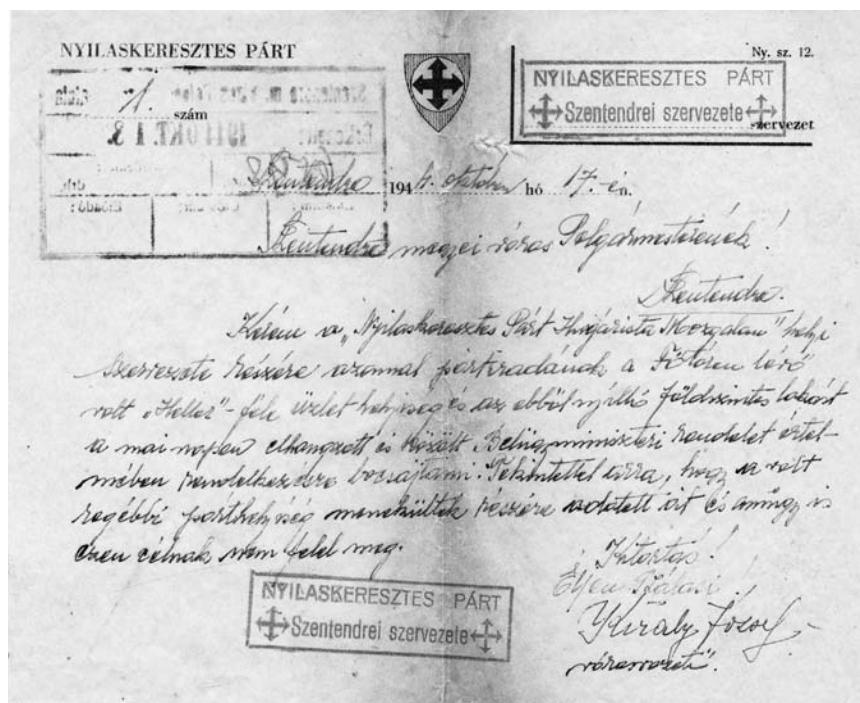 NYILASKERESZTES PÁRT
Ny. sz. 12.
NYILASKERESZTES PÁRT
Szentendrei szervezete
szervezet
1. szám
Érkezett: 1944 OKT. 18.
Szentendre 1944. október hó 17.-én.
Szentendre megyei város Polgármesterének!
Szentendre.
Kérem a „Nyilaskeresztes Párt Hungarista Mozgalom" helyi
szervezete részére azonnal pártirodának a Főtéren levő
volt „Heller"-féle üzlet helyiség és az ebből nyílló földszintes lakást
a mai napon elhangzott és közölt Belügyminiszteri rendelet értel-
mében rendelkezésre bocsájtani. Tekintettel arra, hogy a volt
régebbi párthelyiség menekültek részére adatott át és amúgy is
ezen célnak nem felel meg.
Kitartás!
Éljen Szálasi!
Király József
városvezető.
NYILASKERESZTES PÁRT
Szentendrei szervezete